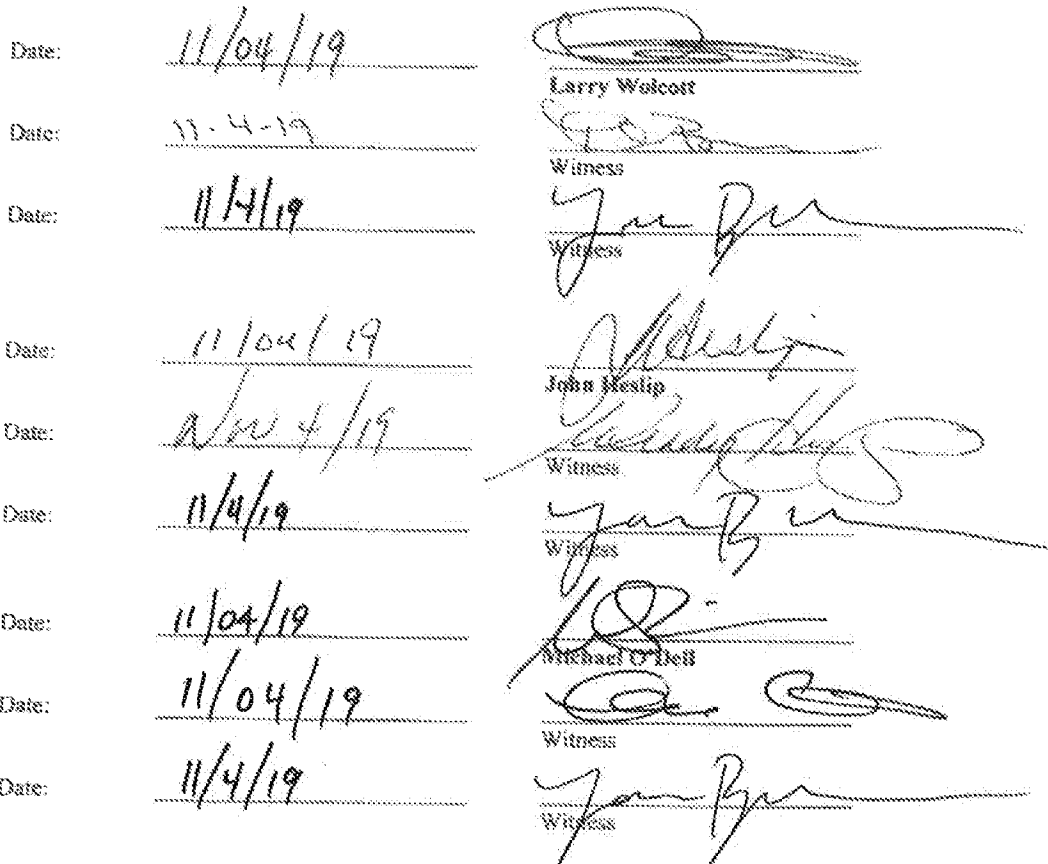 Date: 11/04/19
Larry Wolcott
Date: 11-4-19
Witness
Date: 11/4/19
Witness
Date: 11/04/19
John Heslip
Date: Nov 4/19
Witness
Date: 11/4/19
Witness
Date: 11/04/19
Michael O'Dell
Date: 11/04/19
Witness
Date: 11/4/19
Witness